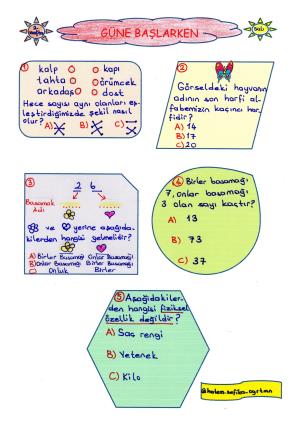 2. Sınıflar
GÜNE BAŞLARKEN
Salı
1
kalp o o kapı
tahta o o örümcek
arkadaş o o dost
Hece sayısı aynı olanları eş-
leştirdiğimizde şekil nasıl
olur? A) B) C)
2
Görseldeki hayvanın
adının son harfi al-
fabemizin kaçıncı har-
fidir?
A) 14
B) 17
C) 20
3
2 6
Basamak
Adı
ve yerine aşağıda-
kilerden hangisi gelmelidir?
A) Birler Basamağı Onlar Basamağı
B) Onlar Basamağı Birler Basamağı
C) Onluk Birler
4 Birler basamağı
7, onlar basamağı
3 olan sayı kaçtır?
A) 13
B) 73
C) 37
5 Aşağıdakiler-
den hangisi fiziksel
özellik değildir?
A) Saç rengi
B) Yetenek
C) Kilo